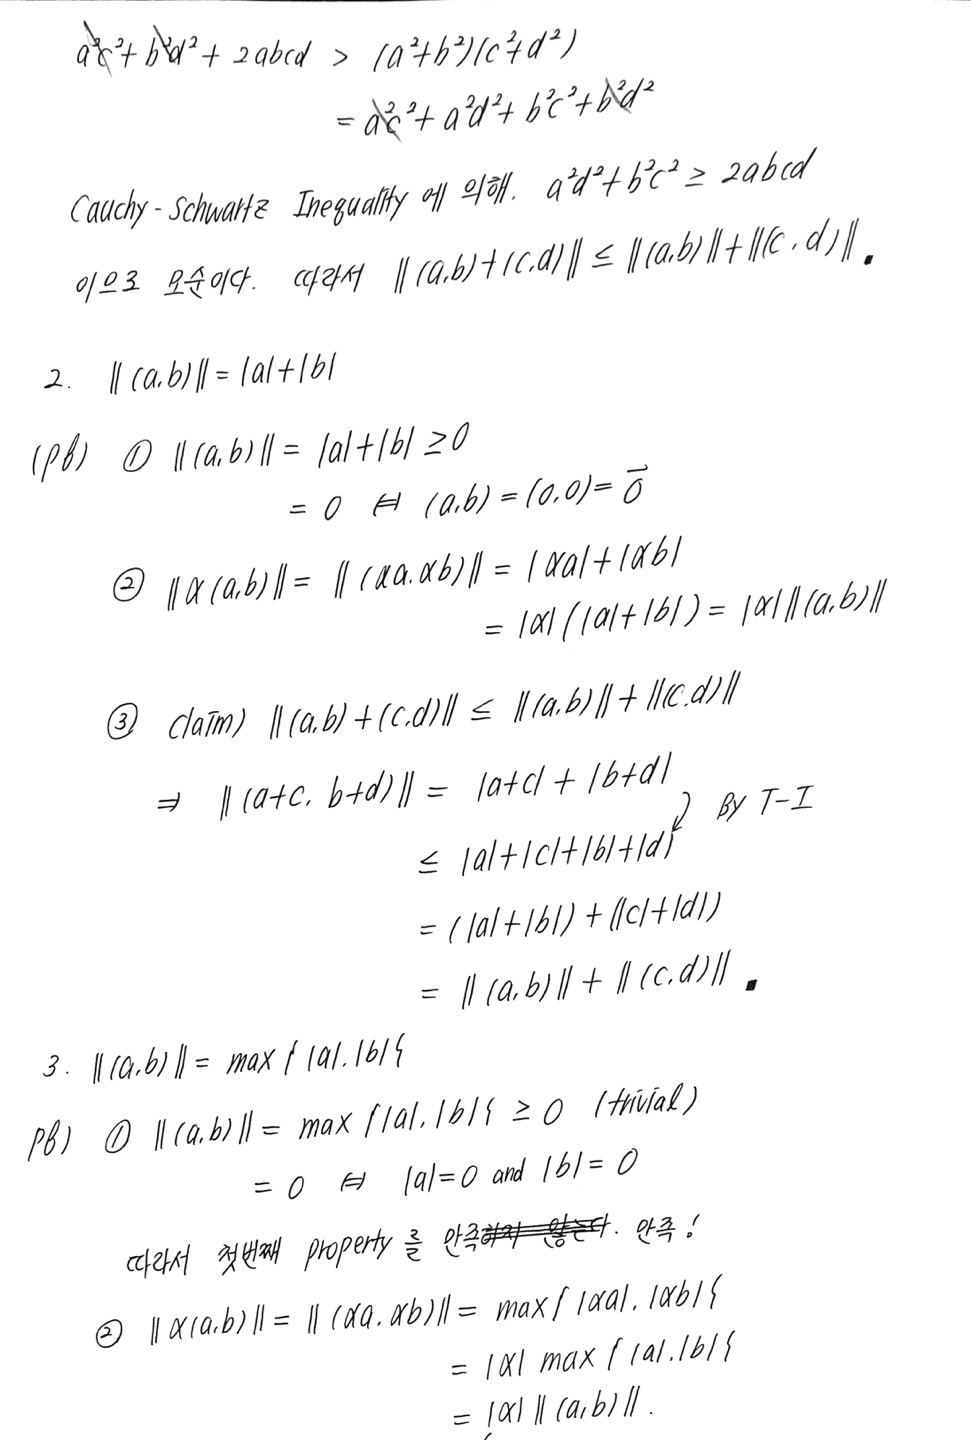 a²c²+b²d²+2abcd > (a²+b²)(c²+d²)
= a²c²+a²d²+b²c²+b²d²
Cauchy-Schwartz Inequality 에 의해. a²d²+b²c² ≥ 2abcd
이으로 모순이다. 따라서 ||(a,b)+(c,d)|| ≤ ||(a,b)||+||(c,d)||.
2. ||(a,b)|| = |a|+|b|
(pf) ① ||(a,b)|| = |a|+|b| ≥ 0
= 0 ⇔ (a,b) = (0,0) = 0⃗
② ||α(a,b)|| = ||(αa,αb)|| = |αa|+|αb|
= |α|(|a|+|b|) = |α| ||(a,b)||
③ claim) ||(a,b)+(c,d)|| ≤ ||(a,b)||+||(c,d)||
⇒ ||(a+c, b+d)|| = |a+c| + |b+d|
By T-I
≤ |a|+|c|+|b|+|d|
= (|a|+|b|)+(|c|+|d|)
= ||(a,b)|| + ||(c,d)||.
3. ||(a,b)|| = max{|a|,|b|}
pf) ① ||(a,b)|| = max{|a|,|b|} ≥ 0 (trivial)
= 0 ⇔ |a|=0 and |b|=0
따라서 첫번째 property를 만족하지 않는다. 만족!
② ||α(a,b)|| = ||(αa,αb)|| = max{|αa|,|αb|}
= |α| max{|a|,|b|}
= |α| ||(a,b)||.